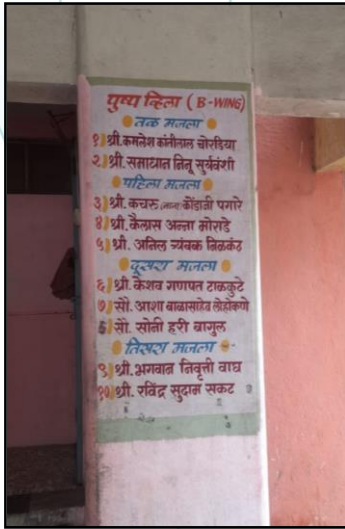 पुष्प व्हिला (B-WING)
तळ मजला
१) श्री. कमलेश कांतीलाल चोरडिया
२) श्री. समाधान निनू सुर्यवंशी
पहिला मजला
३) श्री. कचरू (नाना) कोंडाजी पगारे
४) श्री. कैलास अन्ना मोराडे
५) श्री. अनिल त्र्यंबक निळकंठ
दूसरा मजला
६) श्री. केशव गणपत टाळकुटे
७) सौ. आशा बाळासाहेब लोहोकणे
८) सौ. सोनी हरी बागुल
तिसरा मजला
९) श्री. भगवान निवृत्ती वाघ
१०) श्री. रविंद्र सुदाम सकट